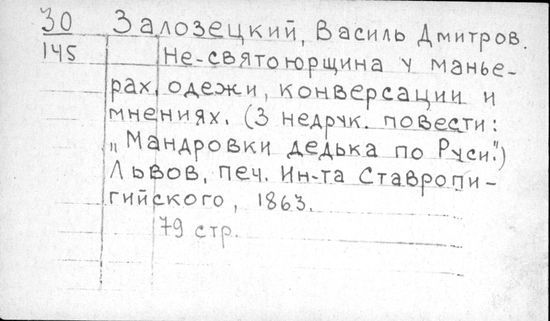 30 Залозецкий, Василь Дмитров.
145 Не-святоюрщина у манье-
рах, одежи, конверсации и
мнениях. (З недрук. повести:
„Мандровки дедька по Руси.")
Львов, печ. Ин-та Ставропи-
гийского, 1863.
79 стр.